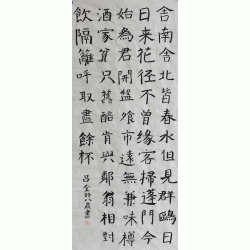 舍南舍北皆春水但見群鷗日
日來花径不曾緣客掃蓬門今
始為君開盤飧市遠無兼味樽
酒家貧只舊醅肯與鄰翁相對
飲隔籬呼取盡餘杯
八歲書